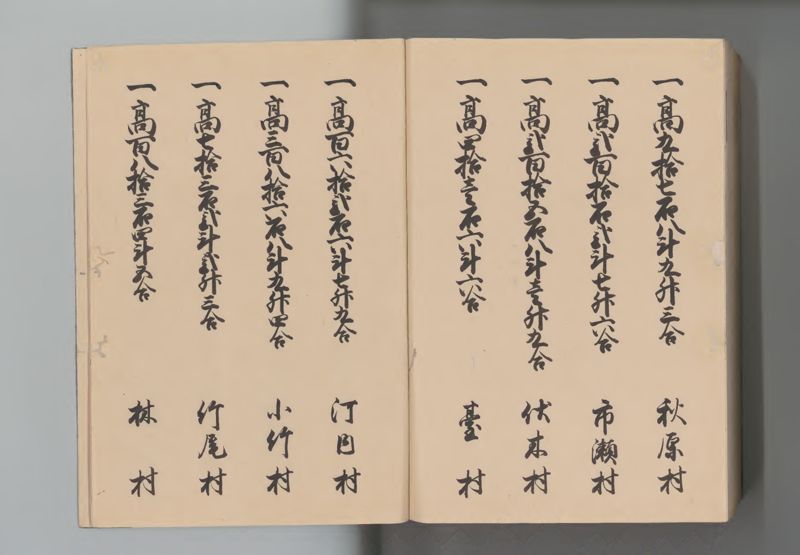 一高九拾七石八斗九升三合 秋原村
一高弐百拾石弐斗七升六合 市瀬村
一高弐百拾五石八斗壱升九合 伏木村
一高四拾壱石六斗六合 臺村
一高百六拾弐石六斗七升九合 汀目村
一高三百八拾六石八斗九升四合 小竹村
一高七拾三石弐斗弐升三合 竹尾村
一高百八拾三石四斗五合 林村